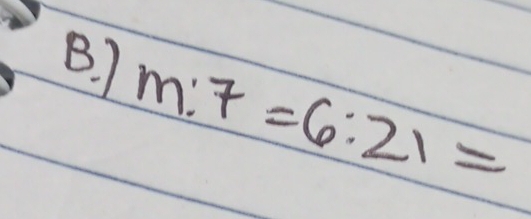 B.) m:7 = 6:21 =